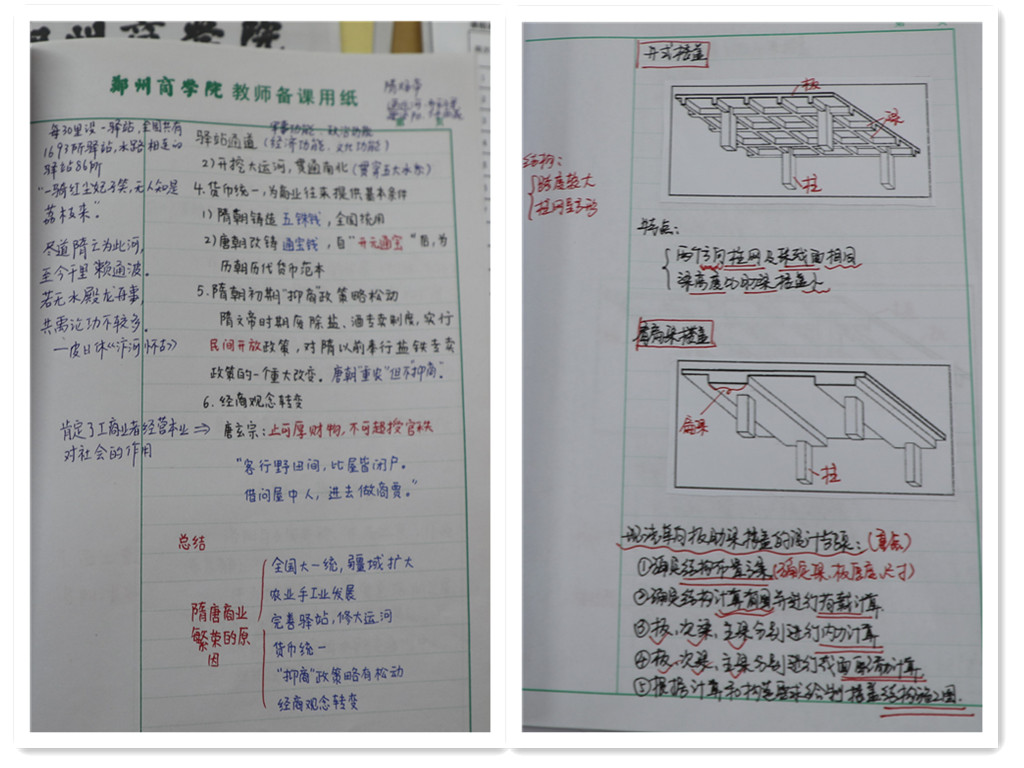 郑州商学院 教师备课用纸
每30里设一驿站,全国共有
1693所驿站,水路相连的
驿站86所
"一骑红尘妃子笑,无人知是
荔枝来"。
尽道隋亡为此河,
至今千里赖通波。
若无水殿龙舟事,
共禹论功不较多。
—皮日休《汴河怀古》
肯定了工商业者经营本业 ⇒
对社会的作用
军事功能、政治功能
驿站通道(经济功能、文化功能)
2)开挖大运河,贯通南北(贯穿五大水系)
4.货币统一,为商业往来提供基本条件
1)隋朝铸造五铢钱,全国统用
2)唐朝改铸通宝钱,自"开元通宝"后,为
历朝历代货币范本
5.隋朝初期"抑商"政策略松动
隋文帝时期废除盐、酒专卖制度,实行
民间开放政策,对隋以前奉行盐铁专卖
政策的一个重大改变。唐朝"重农"但不"抑商"。
6.经商观念转变
唐玄宗:止可厚财物,不可超授官秩
"客行野田间,比屋皆闭户。
借问屋中人,进去做商贾。"
总结
隋唐商业
繁荣的原
因
全国大一统,疆域扩大
农业手工业发展
完善驿站,修大运河
货币统一
"抑商"政策略有松动
经商观念转变
井式楼盖
板
梁
柱
结构:
跨度较大
柱网呈方形
特点:
两个方向柱网及梁截面相同
扁梁
柱
现浇单向板肋梁楼盖的设计步骤:(重点)
①确定结构布置方案(确定梁、板厚度、尺寸)
②确定结构计算简图并进行荷载计算
③板、次梁、主梁分别进行内力计算
④板、次梁、主梁分别进行截面配筋计算
⑤根据计算和构造要求绘制楼盖结构施工图.